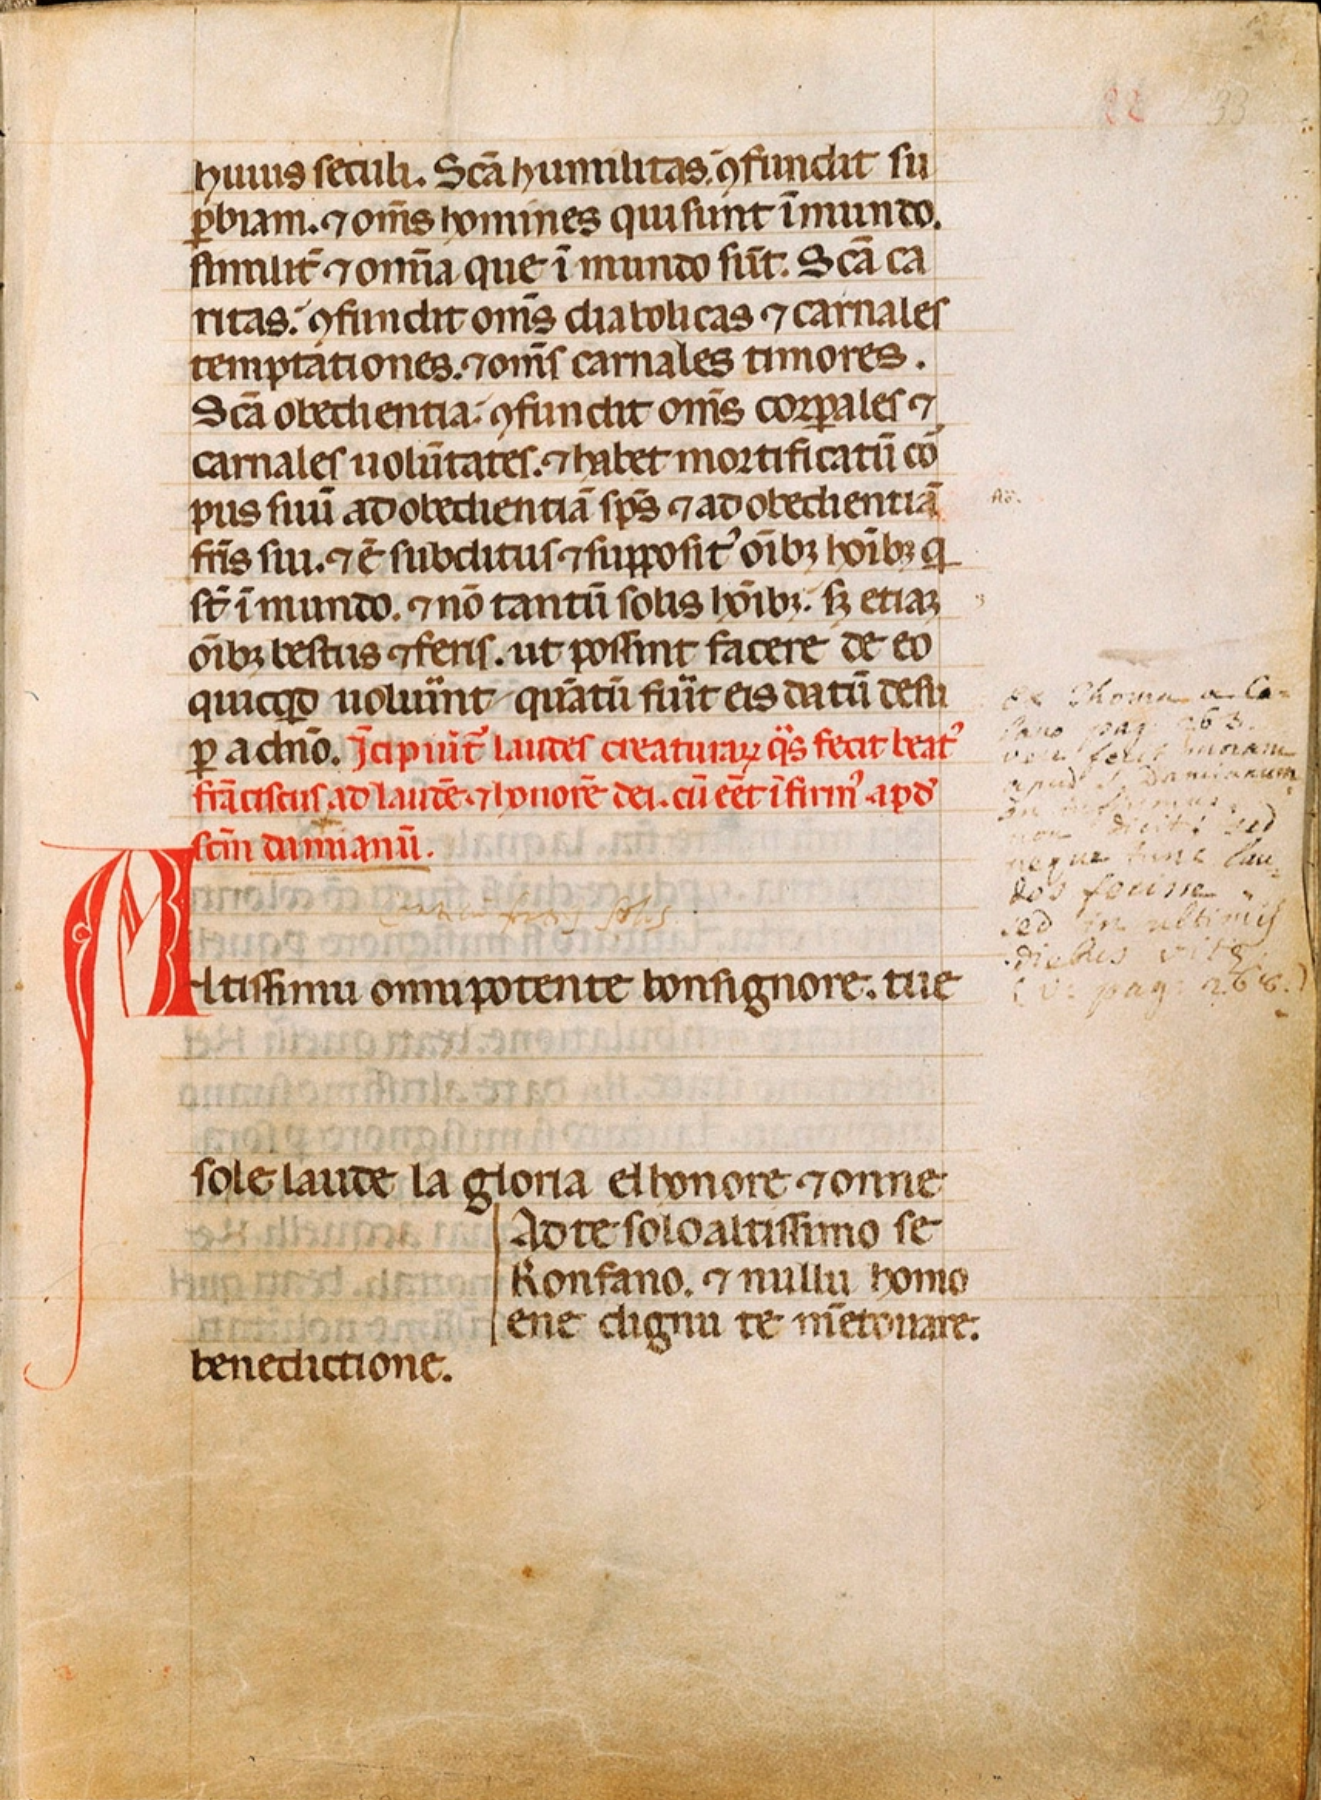 huius seculi. Scā humilitas. ꝯfundit su
ꝑbiam. ⁊ om̄s homines qui sunt ī mundo.
similit̄ ⁊ om̄ia que ī mundo sūt. Scā ca
ritas. ꝯfundit om̄s diabolicas ⁊ carnales
temptationes. ⁊ om̄s carnales timores.
Scā obedientia. ꝯfundit om̄s corꝑales ⁊
carnales uolūtates. ⁊ habet mortificatū co᷒
pus suū ad obedientiā sp̄s ⁊ ad obedientiā
fr̄is sui. ⁊ ē subditus ⁊ supposit᾿ oīb; hoīb; q
st̄ ī mundo. ⁊ nō tantū solis hoīb;. s; etiaꝫ
oīb; bestiis ⁊ feris. ut possint facere de eo
quicq̄d uolūint quātū fūit eis datū desu
ꝑ a dn̄o. Īcipiūt laudes creaturaꝝ q̄s fecit beat᾿
frāciscus ad laudē ⁊ honorē dei. cū eēt īfirm᾿ apd᾿
scm̄ damianū.
Altissimu omnipotente bonsignore. tue
sole laude la gloria elhonore ⁊ onne
Ad te solo altissimo se
Konfano. ⁊ nullu homo
ene dignu te m̄etouare.
benedictione.
22 33
Thoma a Ce-
lano pag. 263.
apud S. Damianum
non dicit: sed
neque tunc lau-
des fecisse
sed in ultimis
diebus vitę
(v. pag. 266.)